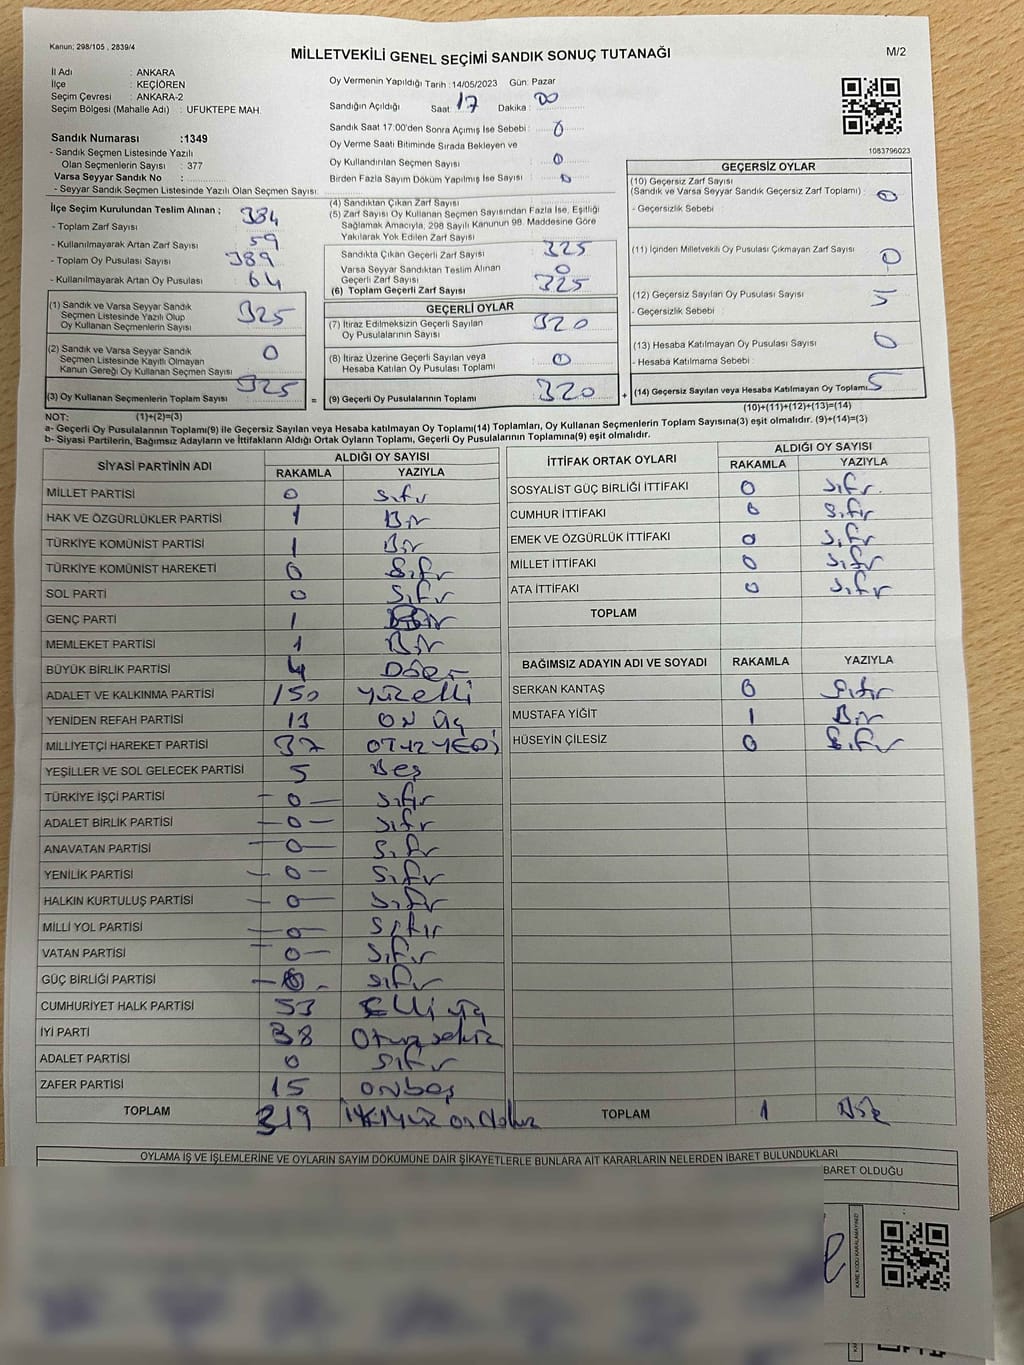 Kanun; 298/105 , 2839/4
MİLLETVEKİLİ GENEL SEÇİMİ SANDIK SONUÇ TUTANAĞI
M/2
İl Adı : ANKARA
İlçe : KEÇİÖREN
Seçim Çevresi : ANKARA-2
Seçim Bölgesi (Mahalle Adı) : UFUKTEPE MAH.
Oy Vermenin Yapıldığı Tarih : 14/05/2023 Gün: Pazar
Sandığın Açıldığı Saat : 17 Dakika : 00
Sandık Saat 17:00'den Sonra Açımış İse Sebebi : 0
Oy Verme Saati Bitiminde Sırada Bekleyen ve
Oy Kullandırılan Seçmen Sayısı : 0
Birden Fazla Sayım Döküm Yapılmış İse Sayısı : 0
1083796023
Sandık Numarası :1349
- Sandık Seçmen Listesinde Yazılı
Olan Seçmenlerin Sayısı : 377
Varsa Seyyar Sandık No :
- Seyyar Sandık Seçmen Listesinde Yazılı Olan Seçmen Sayısı:
İlçe Seçim Kurulundan Teslim Alınan ;
- Toplam Zarf Sayısı : 384
- Kullanılmayarak Artan Zarf Sayısı : 59
- Toplam Oy Pusulası Sayısı : 389
- Kullanılmayarak Artan Oy Pusulası : 64
(1) Sandık ve Varsa Seyyar Sandık
Seçmen Listesinde Yazılı Olup
Oy Kullanan Seçmenlerin Sayısı : 325
(2) Sandık ve Varsa Seyyar Sandık
Seçmen Listesinde Kayıtlı Olmayan
Kanun Gereği Oy Kullanan Seçmen Sayısı : 0
(3) Oy Kullanan Seçmenlerin Toplam Sayısı : 325
(4) Sandıktan Çıkan Zarf Sayısı :
(5) Zarf Sayısı Oy Kullanan Seçmen Sayısından Fazla İse, Eşitliği
Sağlamak Amacıyla, 298 Sayılı Kanunun 98. Maddesine Göre
Yakılarak Yok Edilen Zarf Sayısı :
Sandıkta Çıkan Geçerli Zarf Sayısı : 325
Varsa Seyyar Sandıktan Teslim Alınan
Geçerli Zarf Sayısı : 0
(6) Toplam Geçerli Zarf Sayısı : 325
GEÇERLİ OYLAR
(7) İtiraz Edilmeksizin Geçerli Sayılan
Oy Pusulalarının Sayısı : 320
(8) İtiraz Üzerine Geçerli Sayılan veya
Hesaba Katılan Oy Pusulası Toplamı : 0
= (9) Geçerli Oy Pusulalarının Toplamı : 320
GEÇERSİZ OYLAR
(10) Geçersiz Zarf Sayısı
(Sandık ve Varsa Seyyar Sandık Geçersiz Zarf Toplamı) : 0
- Geçersizlik Sebebi :
(11) İçinden Milletvekili Oy Pusulası Çıkmayan Zarf Sayısı : 0
(12) Geçersiz Sayılan Oy Pusulası Sayısı : 5
- Geçersizlik Sebebi :
(13) Hesaba Katılmayan Oy Pusulası Sayısı : 0
- Hesaba Katılmama Sebebi :
+ (14) Geçersiz Sayılan veya Hesaba Katılmayan Oy Toplamı : 5
NOT: (1)+(2)=(3)
(10)+(11)+(12)+(13)=(14)
a- Geçerli Oy Pusulalarının Toplamı(9) ile Geçersiz Sayılan veya Hesaba katılmayan Oy Toplamı(14) Toplamları, Oy Kullanan Seçmenlerin Toplam Sayısına(3) eşit olmalıdır. (9)+(14)=(3)
b- Siyasi Partilerin, Bağımsız Adayların ve İttifakların Aldığı Ortak Oyların Toplamı, Geçerli Oy Pusulalarının Toplamına(9) eşit olmalıdır.
SİYASİ PARTİNİN ADI ALDIĞI OY SAYISI
RAKAMLA YAZIYLA
MİLLET PARTİSİ 0 Sıfır
HAK VE ÖZGÜRLÜKLER PARTİSİ 1 Bir
TÜRKİYE KOMÜNİST PARTİSİ 1 Bir
TÜRKİYE KOMÜNİST HAREKETİ 0 Sıfır
SOL PARTİ 0 Sıfır
GENÇ PARTİ 1 Bir
MEMLEKET PARTİSİ 1 Bir
BÜYÜK BİRLİK PARTİSİ 4 Dört
ADALET VE KALKINMA PARTİSİ 150 Yüzelli
YENİDEN REFAH PARTİSİ 13 ON üç
MİLLİYETÇİ HAREKET PARTİSİ 37 OTUZ YEDİ
YEŞİLLER VE SOL GELECEK PARTİSİ 5 Beş
TÜRKİYE İŞÇİ PARTİSİ - 0 - Sıfır
ADALET BİRLİK PARTİSİ - 0 - Sıfır
ANAVATAN PARTİSİ - 0 - Sıfır
YENİLİK PARTİSİ - 0 - Sıfır
HALKIN KURTULUŞ PARTİSİ - 0 - Sıfır
MİLLİ YOL PARTİSİ - 0 - Sıfır
VATAN PARTİSİ - 0 - Sıfır
GÜÇ BİRLİĞİ PARTİSİ - 0 - Sıfır
CUMHURİYET HALK PARTİSİ 53 Elli üç
İYİ PARTİ 38 Otuz sekiz
ADALET PARTİSİ 0 Sıfır
ZAFER PARTİSİ 15 onbeş
TOPLAM 319
İTTİFAK ORTAK OYLARI ALDIĞI OY SAYISI
RAKAMLA YAZIYLA
SOSYALİST GÜÇ BİRLİĞİ İTTİFAKI 0 Sıfır
CUMHUR İTTİFAKI 0 Sıfır
EMEK VE ÖZGÜRLÜK İTTİFAKI 0 Sıfır
MİLLET İTTİFAKI 0 Sıfır
ATA İTTİFAKI 0 Sıfır
TOPLAM
BAĞIMSIZ ADAYIN ADI VE SOYADI RAKAMLA YAZIYLA
SERKAN KANTAŞ 0 Sıfır
MUSTAFA YİĞİT 1 Bir
HÜSEYİN ÇİLESİZ 0 Sıfır
TOPLAM 1
OYLAMA İŞ VE İŞLEMLERİNE VE OYLARIN SAYIM DÖKÜMÜNE DAİR ŞİKAYETLERLE BUNLARA AİT KARARLARIN NELERDEN İBARET BULUNDUKLARI
BARET OLDUĞU
KARE KODU KARALAMAYINIZ!